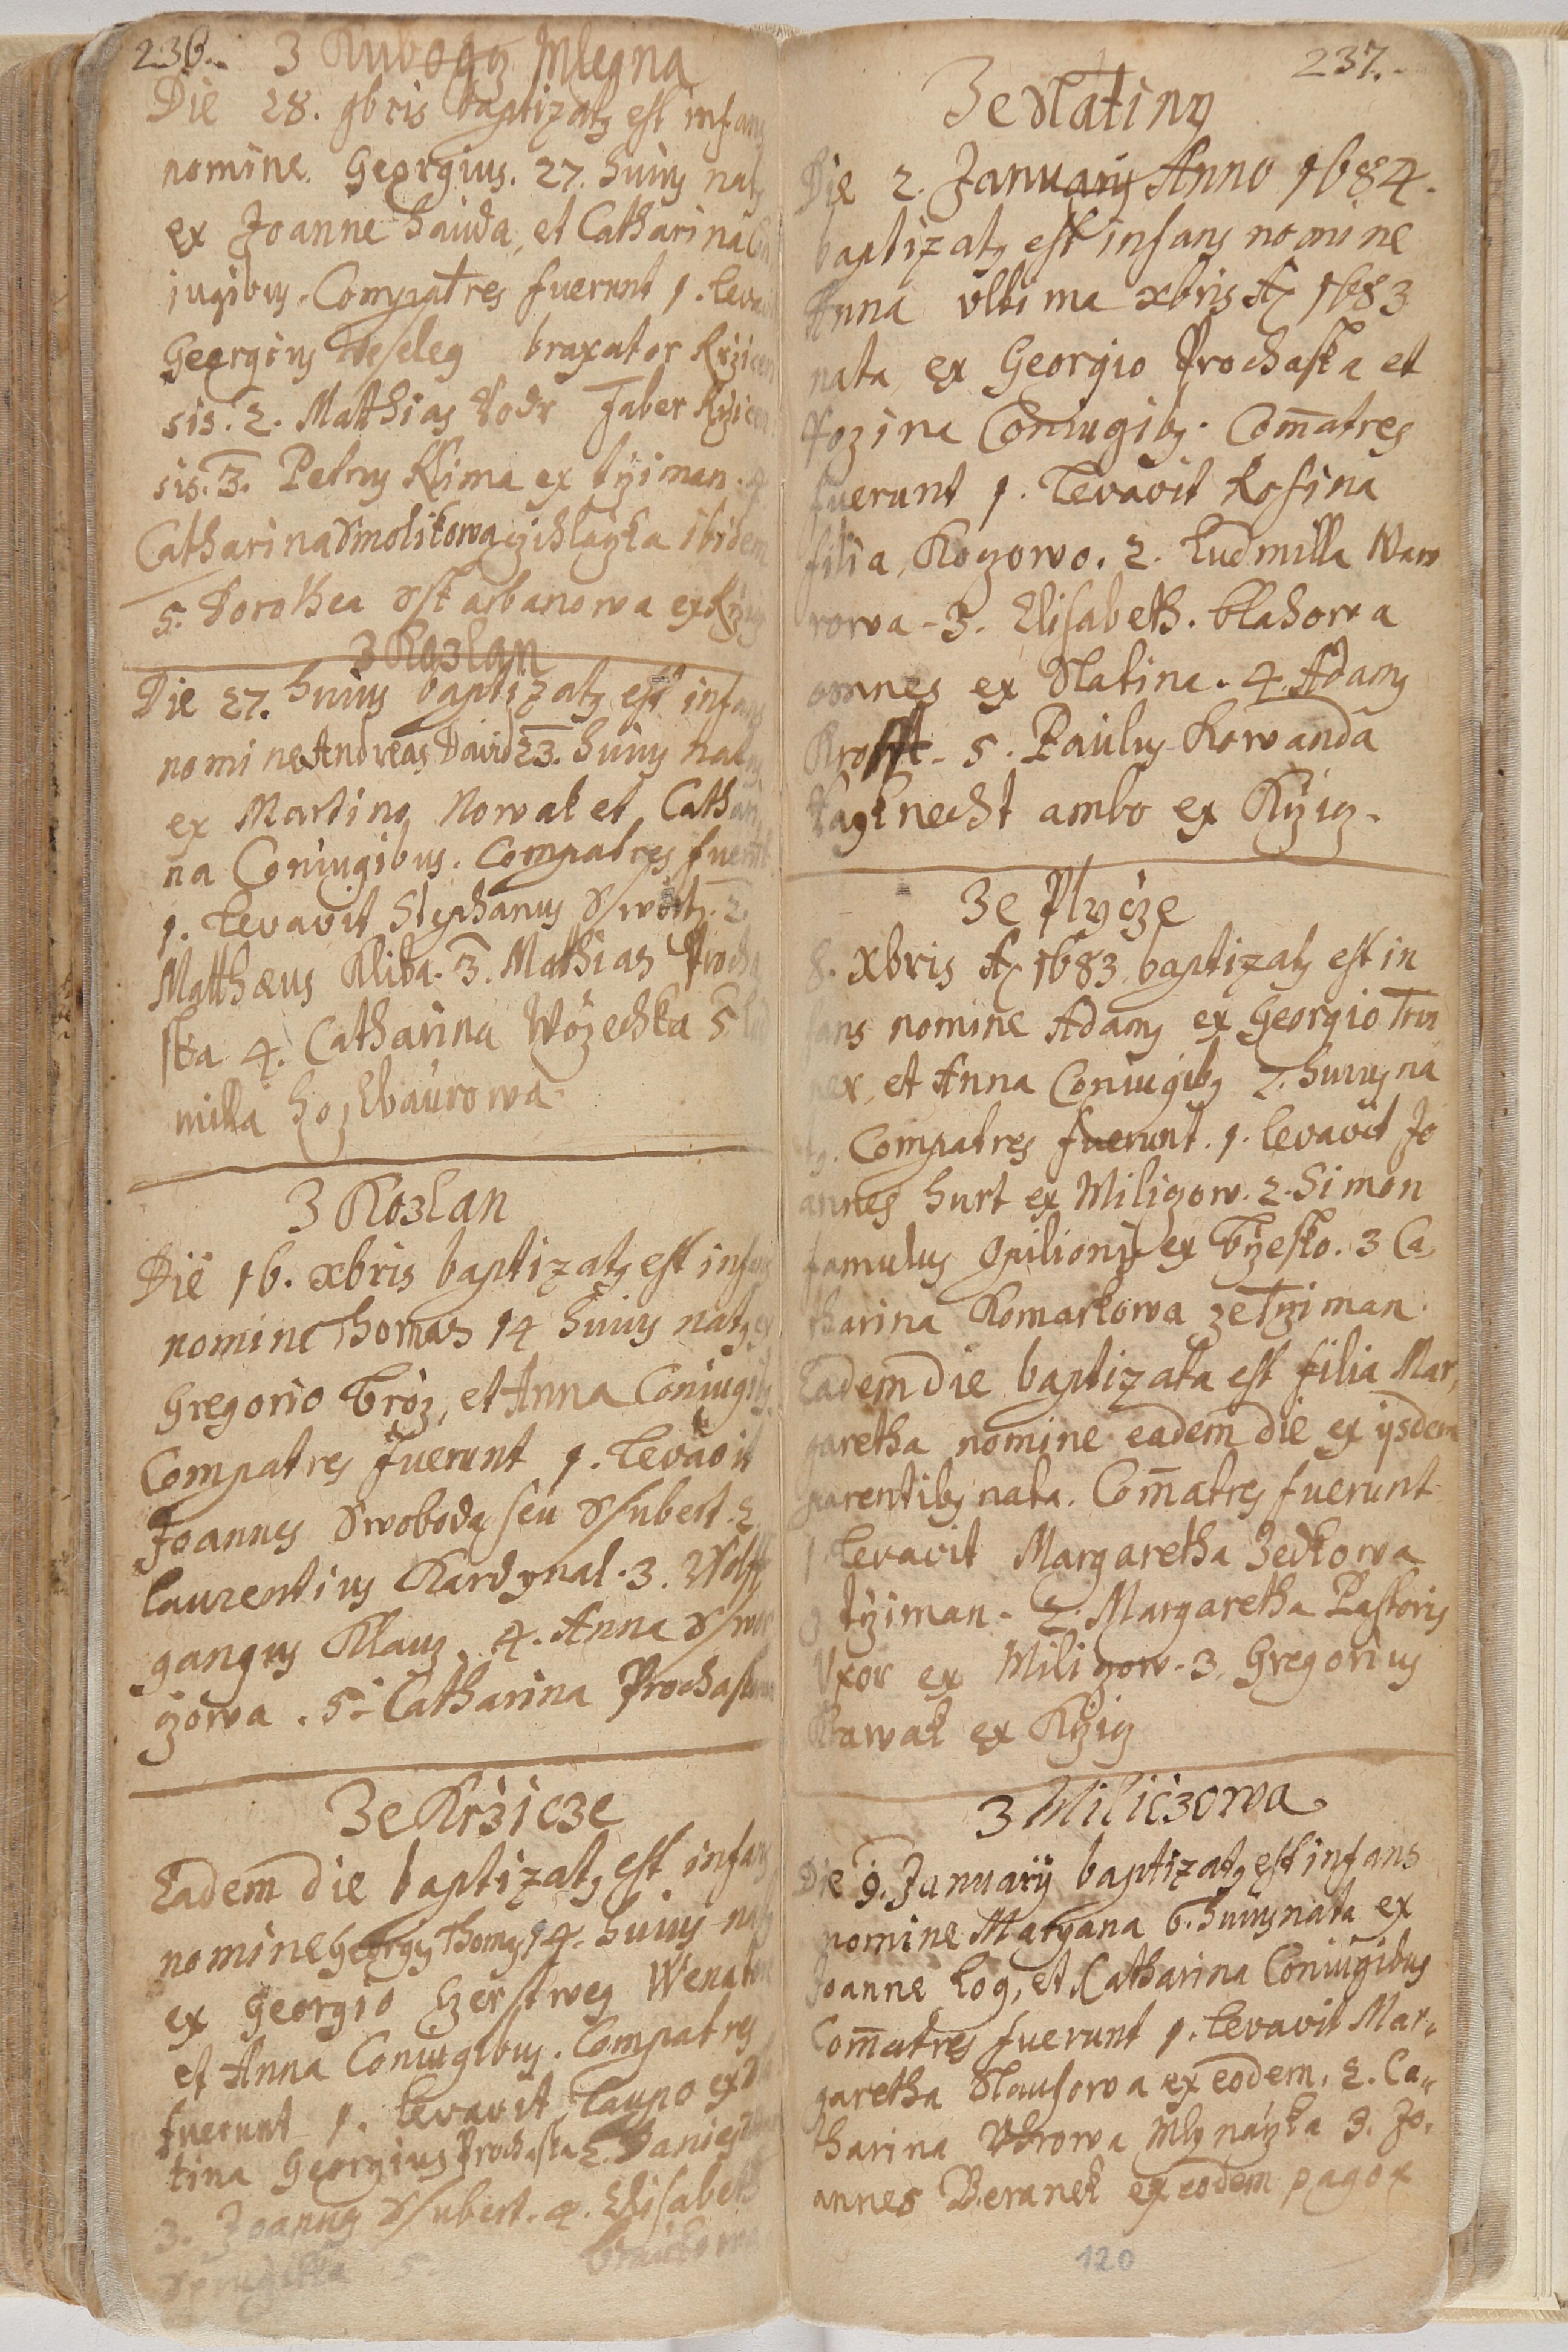 236.
3 Kubogz Mlegna
Die 28. 9bris baptizatus est infans
nomine Georgius. 27. huius natus
ex Joanne hauda, et Catharina Con
iugibus. Compatres fuerunt 1. levavit
Georgius Weseleg braxator Krzicen
sis. 2. Matthias Vodr Faber Krzicen
sis. 3. Petrus Klima ex tziman. 4
Catharina Smolikowa ibidem
5. Dorothea
3 Kozlan
Die 27. huius baptizatus est infans
nomine Andreas David 23. huius natus
ex Martino Nowak et Cathari
na Coniugibus. Compatres fuerunt
1. Levavit Stephanus 2
Matthæus Kliba. 3. Mathias Procha
ska 4. Catharina Wozechka 5
milla hozlbaurowa.
3 Kozlan
Die 16. xbris baptizatus est infans
nomine Thomas 14 huius natus ex
Gregorio Broz, et Anna Coniugibus
Compatres fuerunt 1. Levavit
Joannes Swoboda seu Ssubert. 2
Laurentius Kardynal. 3. Wolff
gangus Klauz. 4. Anna
zowa. 5. Catharina Prochaskowa
3e Krzicze
Eadem die baptizatus est infans
nomine Georgius Thomas 14. huius natus
ex Georgio Wenatore
et Anna Coniugibus. Compatres
fuerunt 1. levavit
tina Georgius Prochaska 2.
3. Joannes Ssubert. 4. Elisabeth
237.
3e Slatiny
Die 2. January Anno 1684.
baptizatus est infans nomine
Anna ultima xbris A. 1683
nata ex Georgio Prochaska et
Rozina Coniugibus. Com̄atres
fuerunt 1. Levavit Rosina
filia Kozowo. 2. Ludmilla Waw
rowa - 3. Elisabeth. blahowa
omnes ex Slatina. 4. Adamus
Krofft - 5. Paulus Kowanda
ambo ex Krzicz.
3e Plycze
8. xbris A. 1683 baptizatus est in
fans nomine Adamus ex Georgio
et Anna Coniugibus 7. huius na
tus. Compatres fuerunt. 1. levavit Jo
annes hurt ex Miliczow. 2. Simon
famulus opilionis ex Brzesko. 3 Ca
tharina Komarkowa ze Trziman.
Eadem die baptizata est filia Mar,
garetha nomine eadem die ex ijsdem
parentibus nata. Com̄atres fuerunt
1. Levavit Margaretha Zedkowa
tziman. 2. Margaretha Pastoris
Uxor ex Miliczow. 3. Gregorius
ex Krzicz
3 Miliczowa
Die 9. Januarij baptizatus est infans
nomine Maryana 6. huius nata ex
Joanne Log, et Catharina Coniugibus
Com̄atres fuerunt 1. Levavit Mar,,
garetha Slausowa ex eodem. 2. Ca,,
tharina Mlynarzka 3. Jo,
annes Beranek ex eodem pago
120